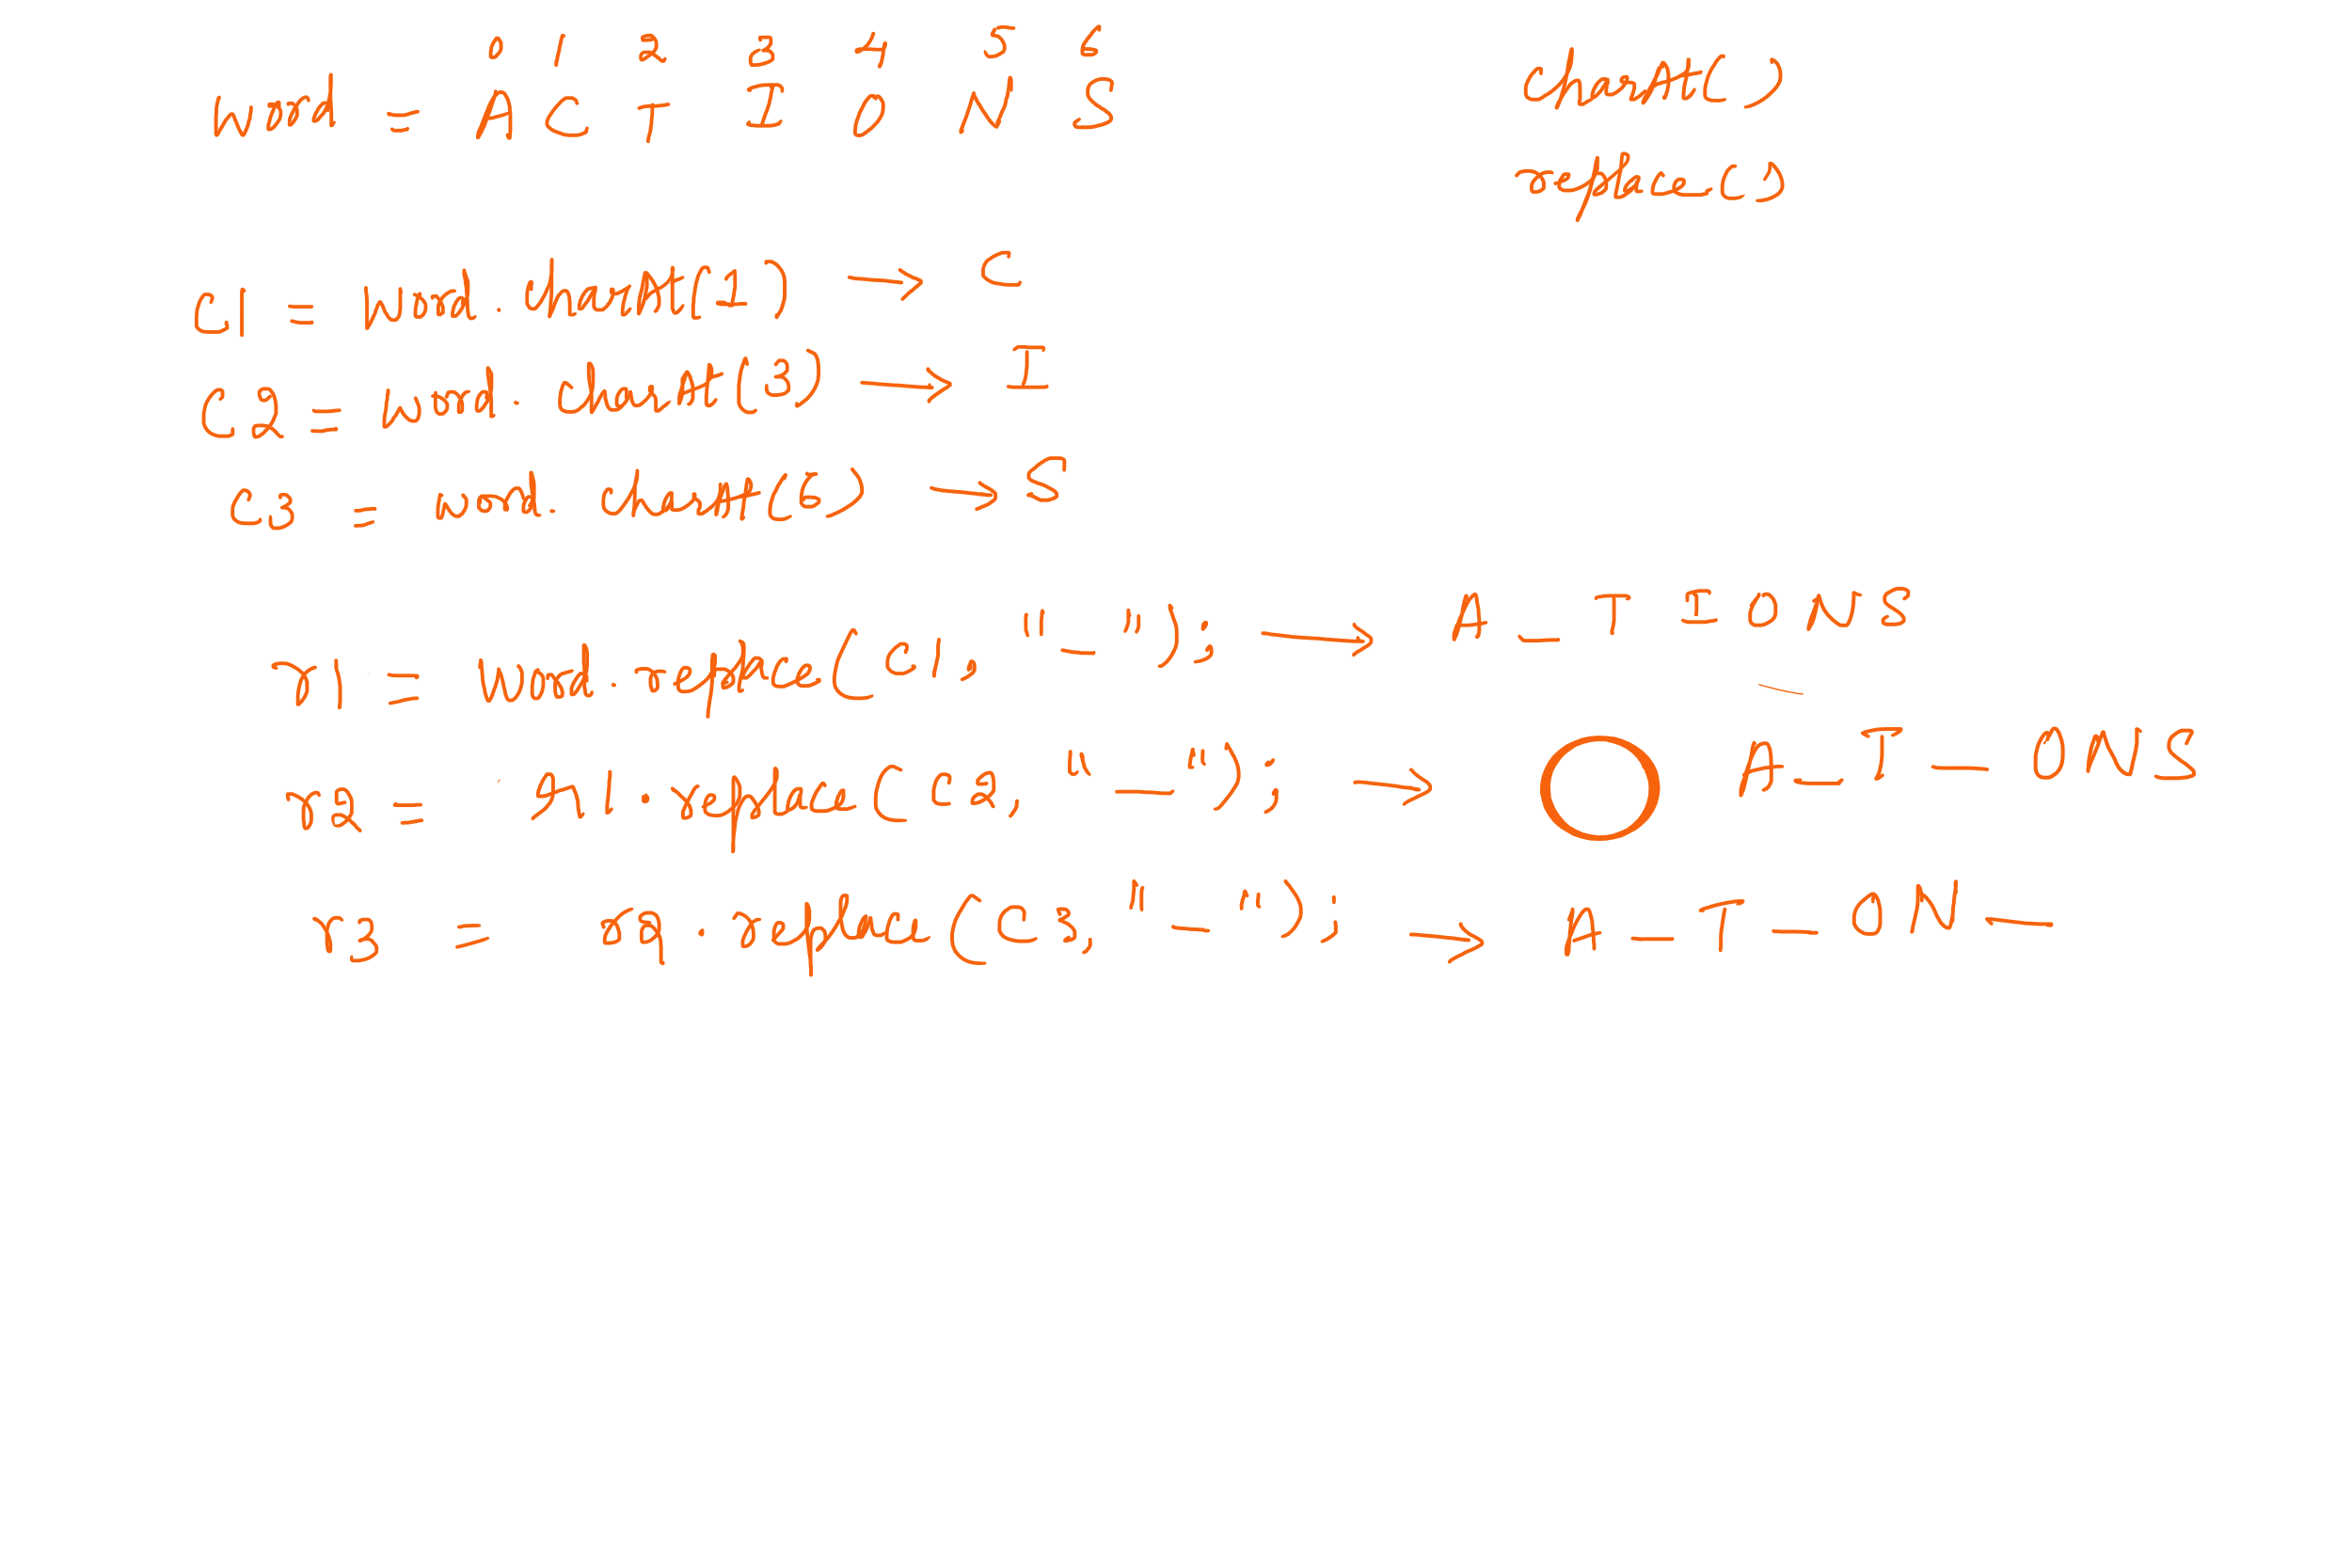 0 1 2 3 4 5 6
word = A C T I O N S
charAt()
replace()
C1 = word.charAt(1) → C
C2 = word.charAt(3) → I
C3 = word.charAt(6) → S
r1 = word.replace(C1, "_"); → A _ T I O N S
r2 = r1.replace(C2, "_"); → A _ T _ O N S
r3 = r2.replace(C3, "_"); → A _ T _ O N _